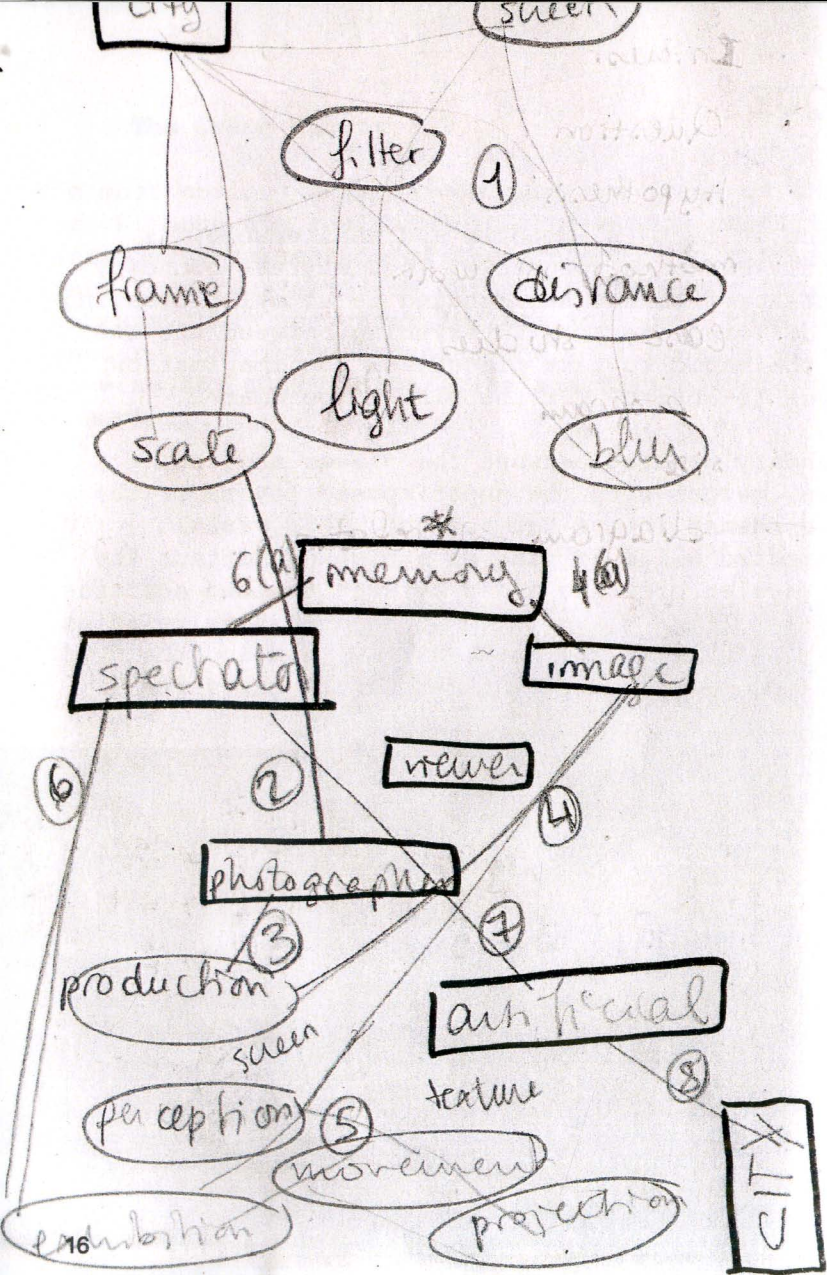 city
screen
filter
1
frame
distance
light
scale
blur
*
6(a)
memory
4(a)
spectator
image
viewer
6
2
4
photographer
3
7
production
artificial
screen
8
texture
perception
5
movement
CITY
projection
exhibition
16